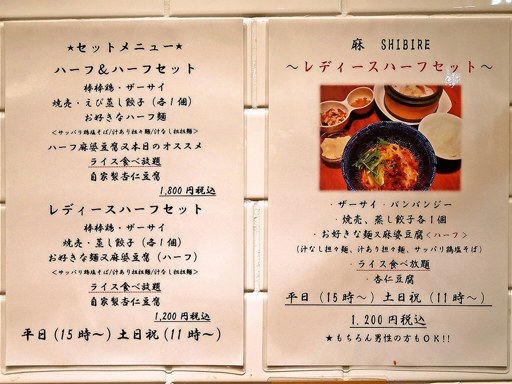 ★セットメニュー★
ハーフ＆ハーフセット
棒棒鶏・ザーサイ
焼売・えび蒸し餃子（各１個）
お好きなハーフ麺
＜サッパリ鶏塩そば/汁あり担々麺/汁なし担担麺＞
ハーフ麻婆豆腐又本日のオススメ
ライス食べ放題
自家製杏仁豆腐
1,800円税込
レディースハーフセット
棒棒鶏・ザーサイ
焼売・蒸し餃子（各１個）
お好きな麺又麻婆豆腐（ハーフ）
＜サッパリ鶏塩そば/汁あり担々麺/汁なし担担麺＞
ライス食べ放題
自家製杏仁豆腐
1,200円税込
平日（15時～）土日祝（11時～）
麻 SHIBIRE
～レディースハーフセット～
・ザーサイ・バンバンジー
・焼売、蒸し餃子各１個
・お好きな麺又麻婆豆腐＜ハーフ＞
（汁なし担々麺、汁あり担々麺、サッパリ鶏塩そば）
・ライス食べ放題
・杏仁豆腐
平日（15時～）土日祝（11時～）
1,200円税込
★もちろん男性の方もOK!!